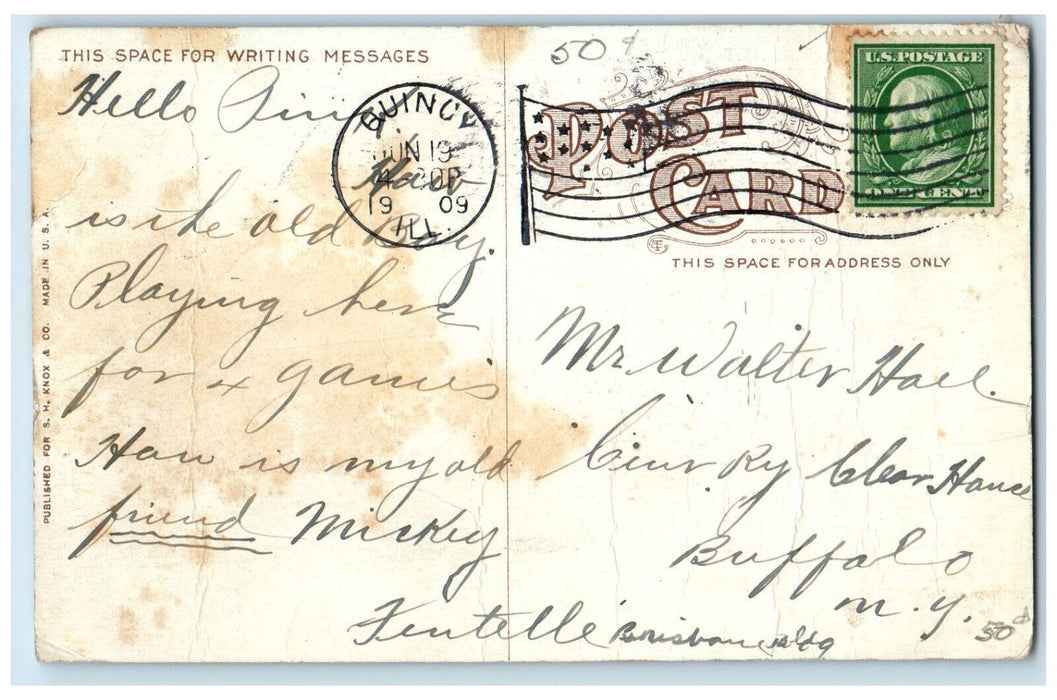 THIS SPACE FOR WRITING MESSAGES
Hello
How
is the old Boy.
Playing here
for 4 games
How is my old
friend Mickey
Fentelle
PUBLISHED FOR S. H. KNOX & CO. MADE IN U. S. A.
QUINCY
JUN 19
1909
ILL.
50¢
POST
CARD
U.S. POSTAGE
ONE CENT
THIS SPACE FOR ADDRESS ONLY
Mr. Walter
Ry Clear House
Buffalo
N. Y.
Brisbane Bldg
50¢